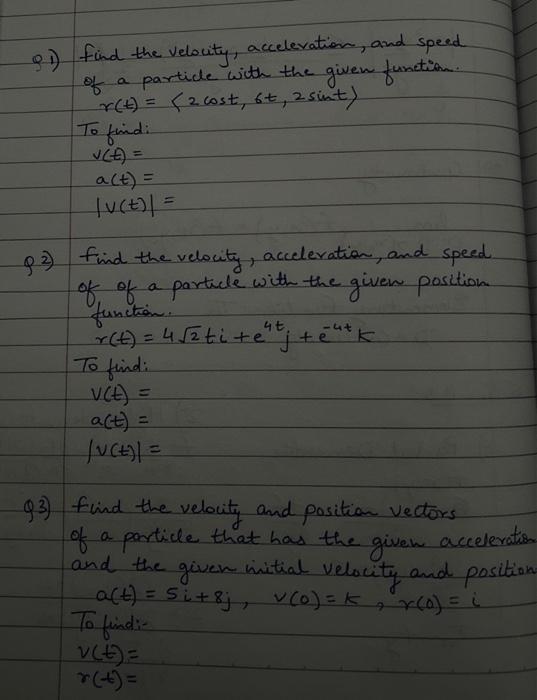 Q1) Find the velocity, acceleration, and speed
of a particle with the given function.
r(t) = ⟨2 cost, 6t, 2 sint⟩
To find:
v(t) =
a(t) =
|v(t)| =
Q2) Find the velocity, acceleration, and speed
of of a particle with the given position
function.
r(t) = 4√2ti + e^4t j + e^-4t k
To find:
v(t) =
a(t) =
|v(t)| =
Q3) Find the velocity and position vectors
of a particle that has the given acceleration
and the given initial velocity and position
a(t) = 5i + 8j, v(0) = k, r(0) = i
To find:-
v(t) =
r(t) =